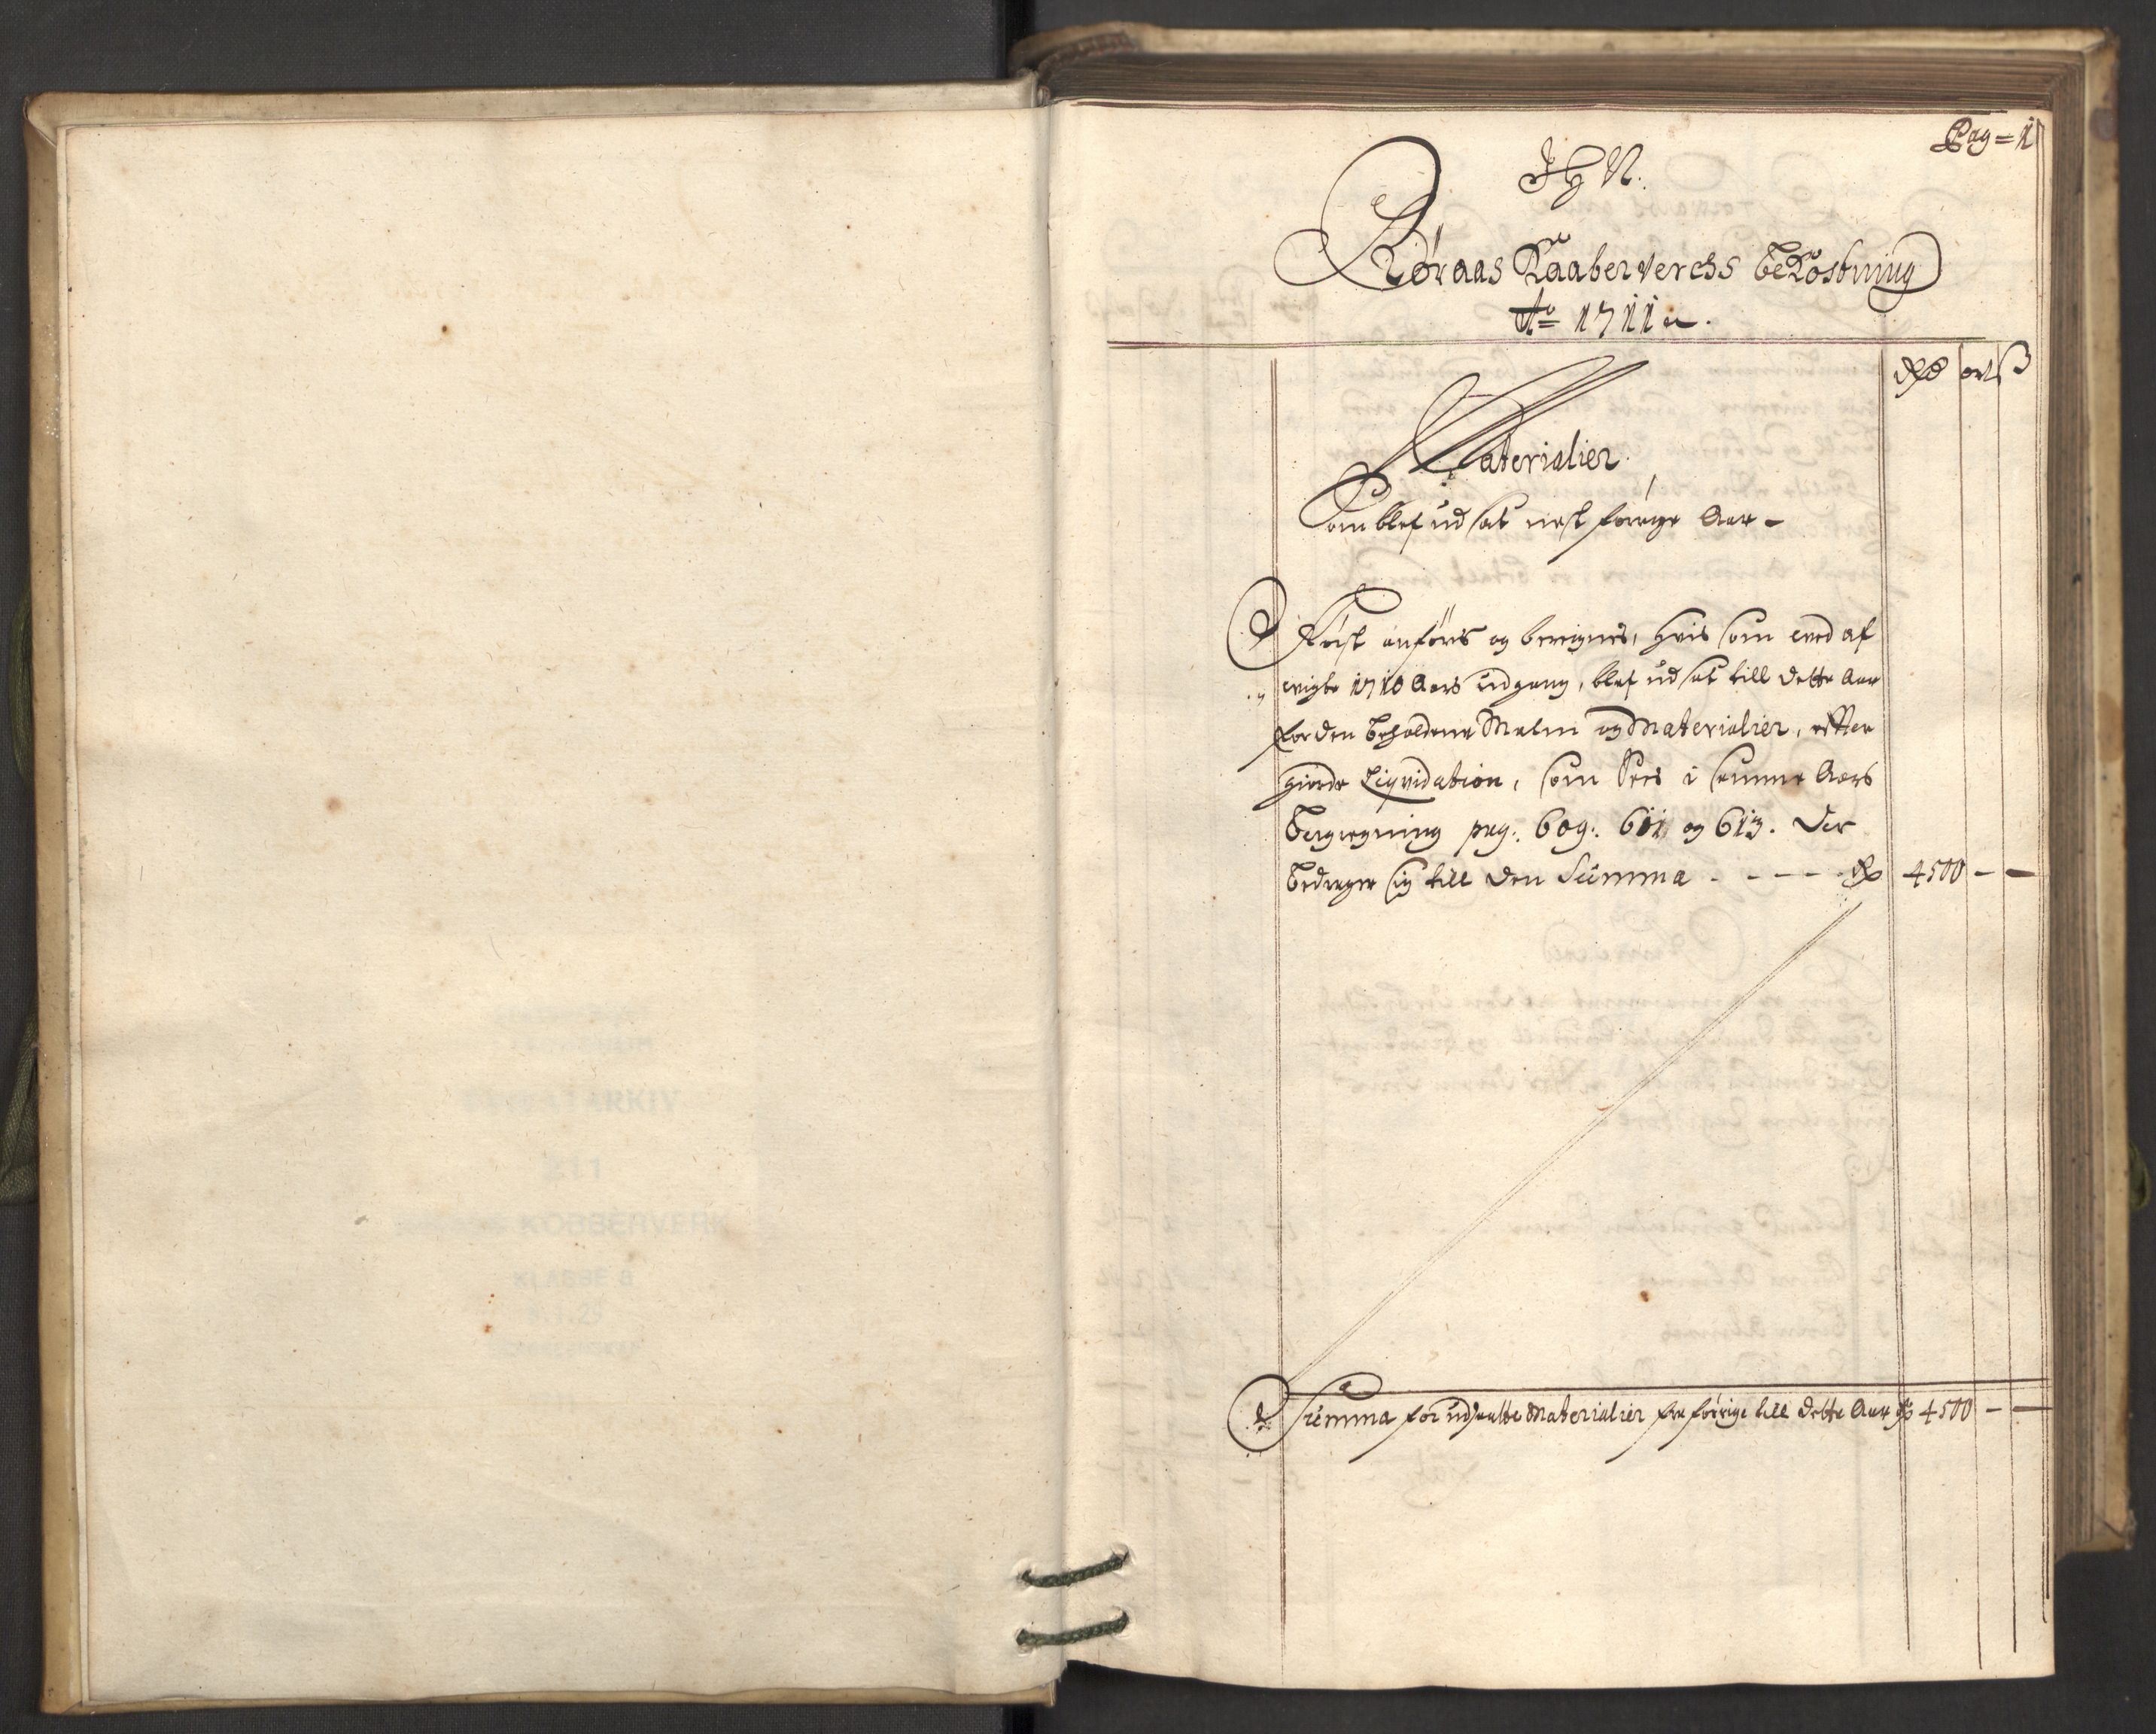 Pag = 1
J H N.
Røraas Kaaberverchs Bekostning
Ao 1711
Rdr ort ß
Materialier
Som blef udsat nest forrige Aar -
Først anføris og beregnis, hvis som ved af
vigte 1710 Aars udgang, blef udsat till dette Aar
for den beholdene Malm og Materialier, effter
giorde Liqvidation, som sees i samme Aars
Bergregning pag: 609: 611 og 613. Der
Bedrager sig till den Summa - - - - Rdr 4500 - -
Summa for udsatte Materialier fra forrige till dette Aar Rdr 4500 - -